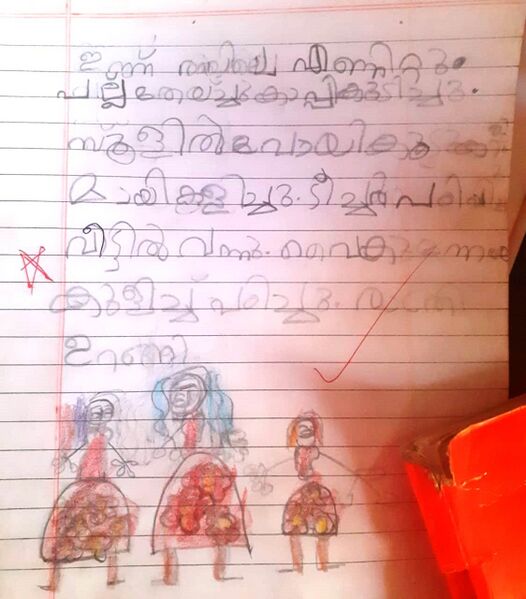 ഇന്ന് രാവിലെ എണിറ്റു.
പല്ല് തേയ്ച്ചു കാപ്പി കുടിച്ചു.
സ്കൂളിൽ പോയി
മായി കളിച്ചു. ടീച്ചർ
വീട്ടിൽ വന്നു. വൈകുന്നേരം
കുളിച്ച് പഠിച്ചു.
ഉറങ്ങി